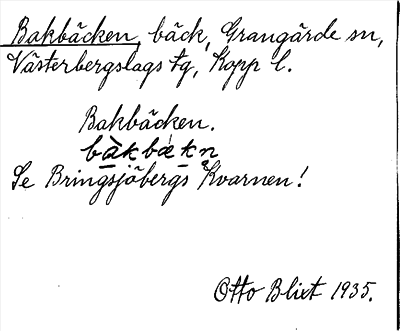 Bakbäcken, bäck, Grangärde sn,
Västerbergslags tg, Kopp l.
Bakbäcken.
bàkbǽkn
Se Bringsjöbergs Kvarnen!
Otto Blixt 1935.